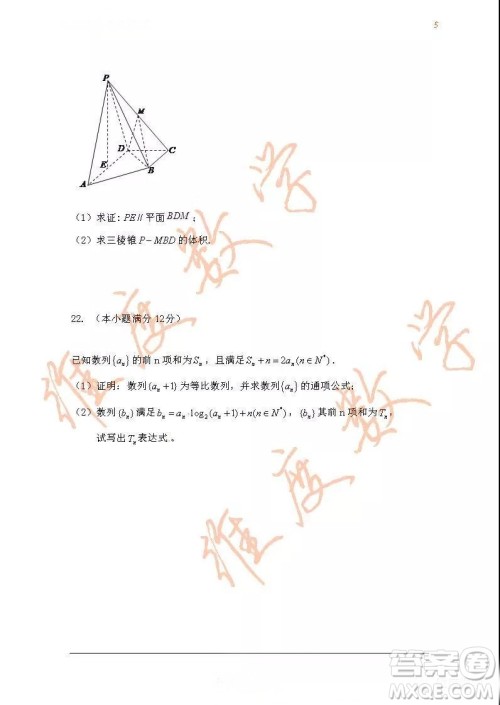 5
P
M
D
C
E
B
A
(1)求证:PE∥平面BDM;
(2)求三棱锥P-MBD的体积.
22. (本小题满分12分)
已知数列{aₙ}的前n项和为Sₙ,且满足Sₙ+n=2aₙ(n∈N*).
(1)证明:数列(aₙ+1)为等比数列,并求数列{aₙ}的通项公式;
(2)数列{bₙ}满足bₙ=aₙ·log₂(aₙ+1)+n(n∈N*),{bₙ}其前n项和为Tₙ,
试写出Tₙ表达式。
维度数学
维度数学
答案圈
MXQE.COM